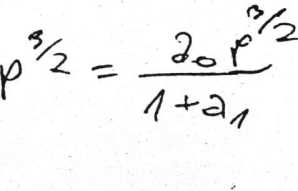 p^{3/2} = \frac{a_0 p^{3/2}}{1 + a_1}